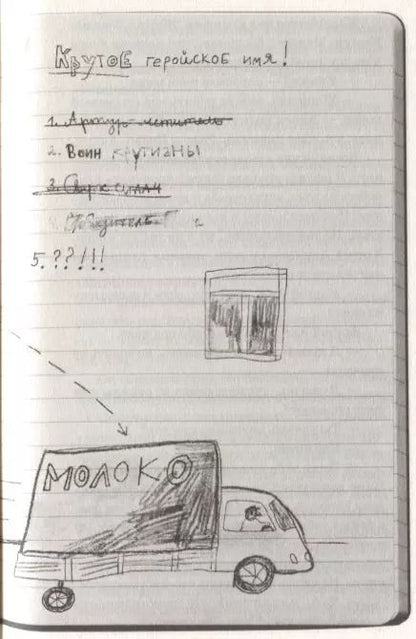 Крутое геройское имя!
1. Артур-мститель
2. Воин крутизны
3.
5. ??!!!
МОЛОКО